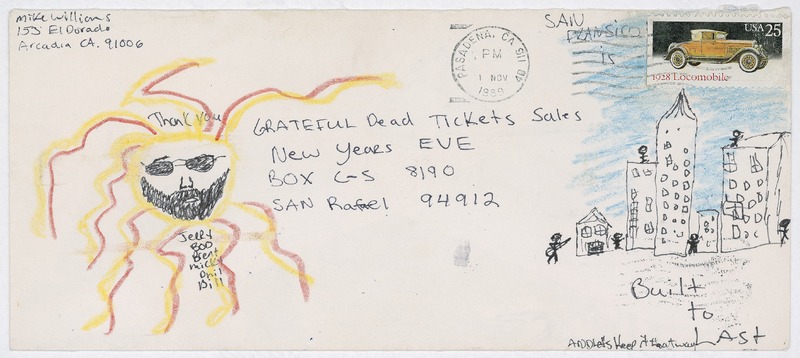 Mike Williams
153 El Dorado
Arcadia CA. 91006
PASADENA, CA 911
PM
1 NOV
1989
SAN
FRANSICO
is
USA 25
1928 Locomobile
Thank you
GRATEFUL Dead Tickets Sales
New Years EVE
BOX G-S 8190
SAN Rafael 94912
Jerry
BOB
Brent
Mick
Phil
Bill
Built
to
Last